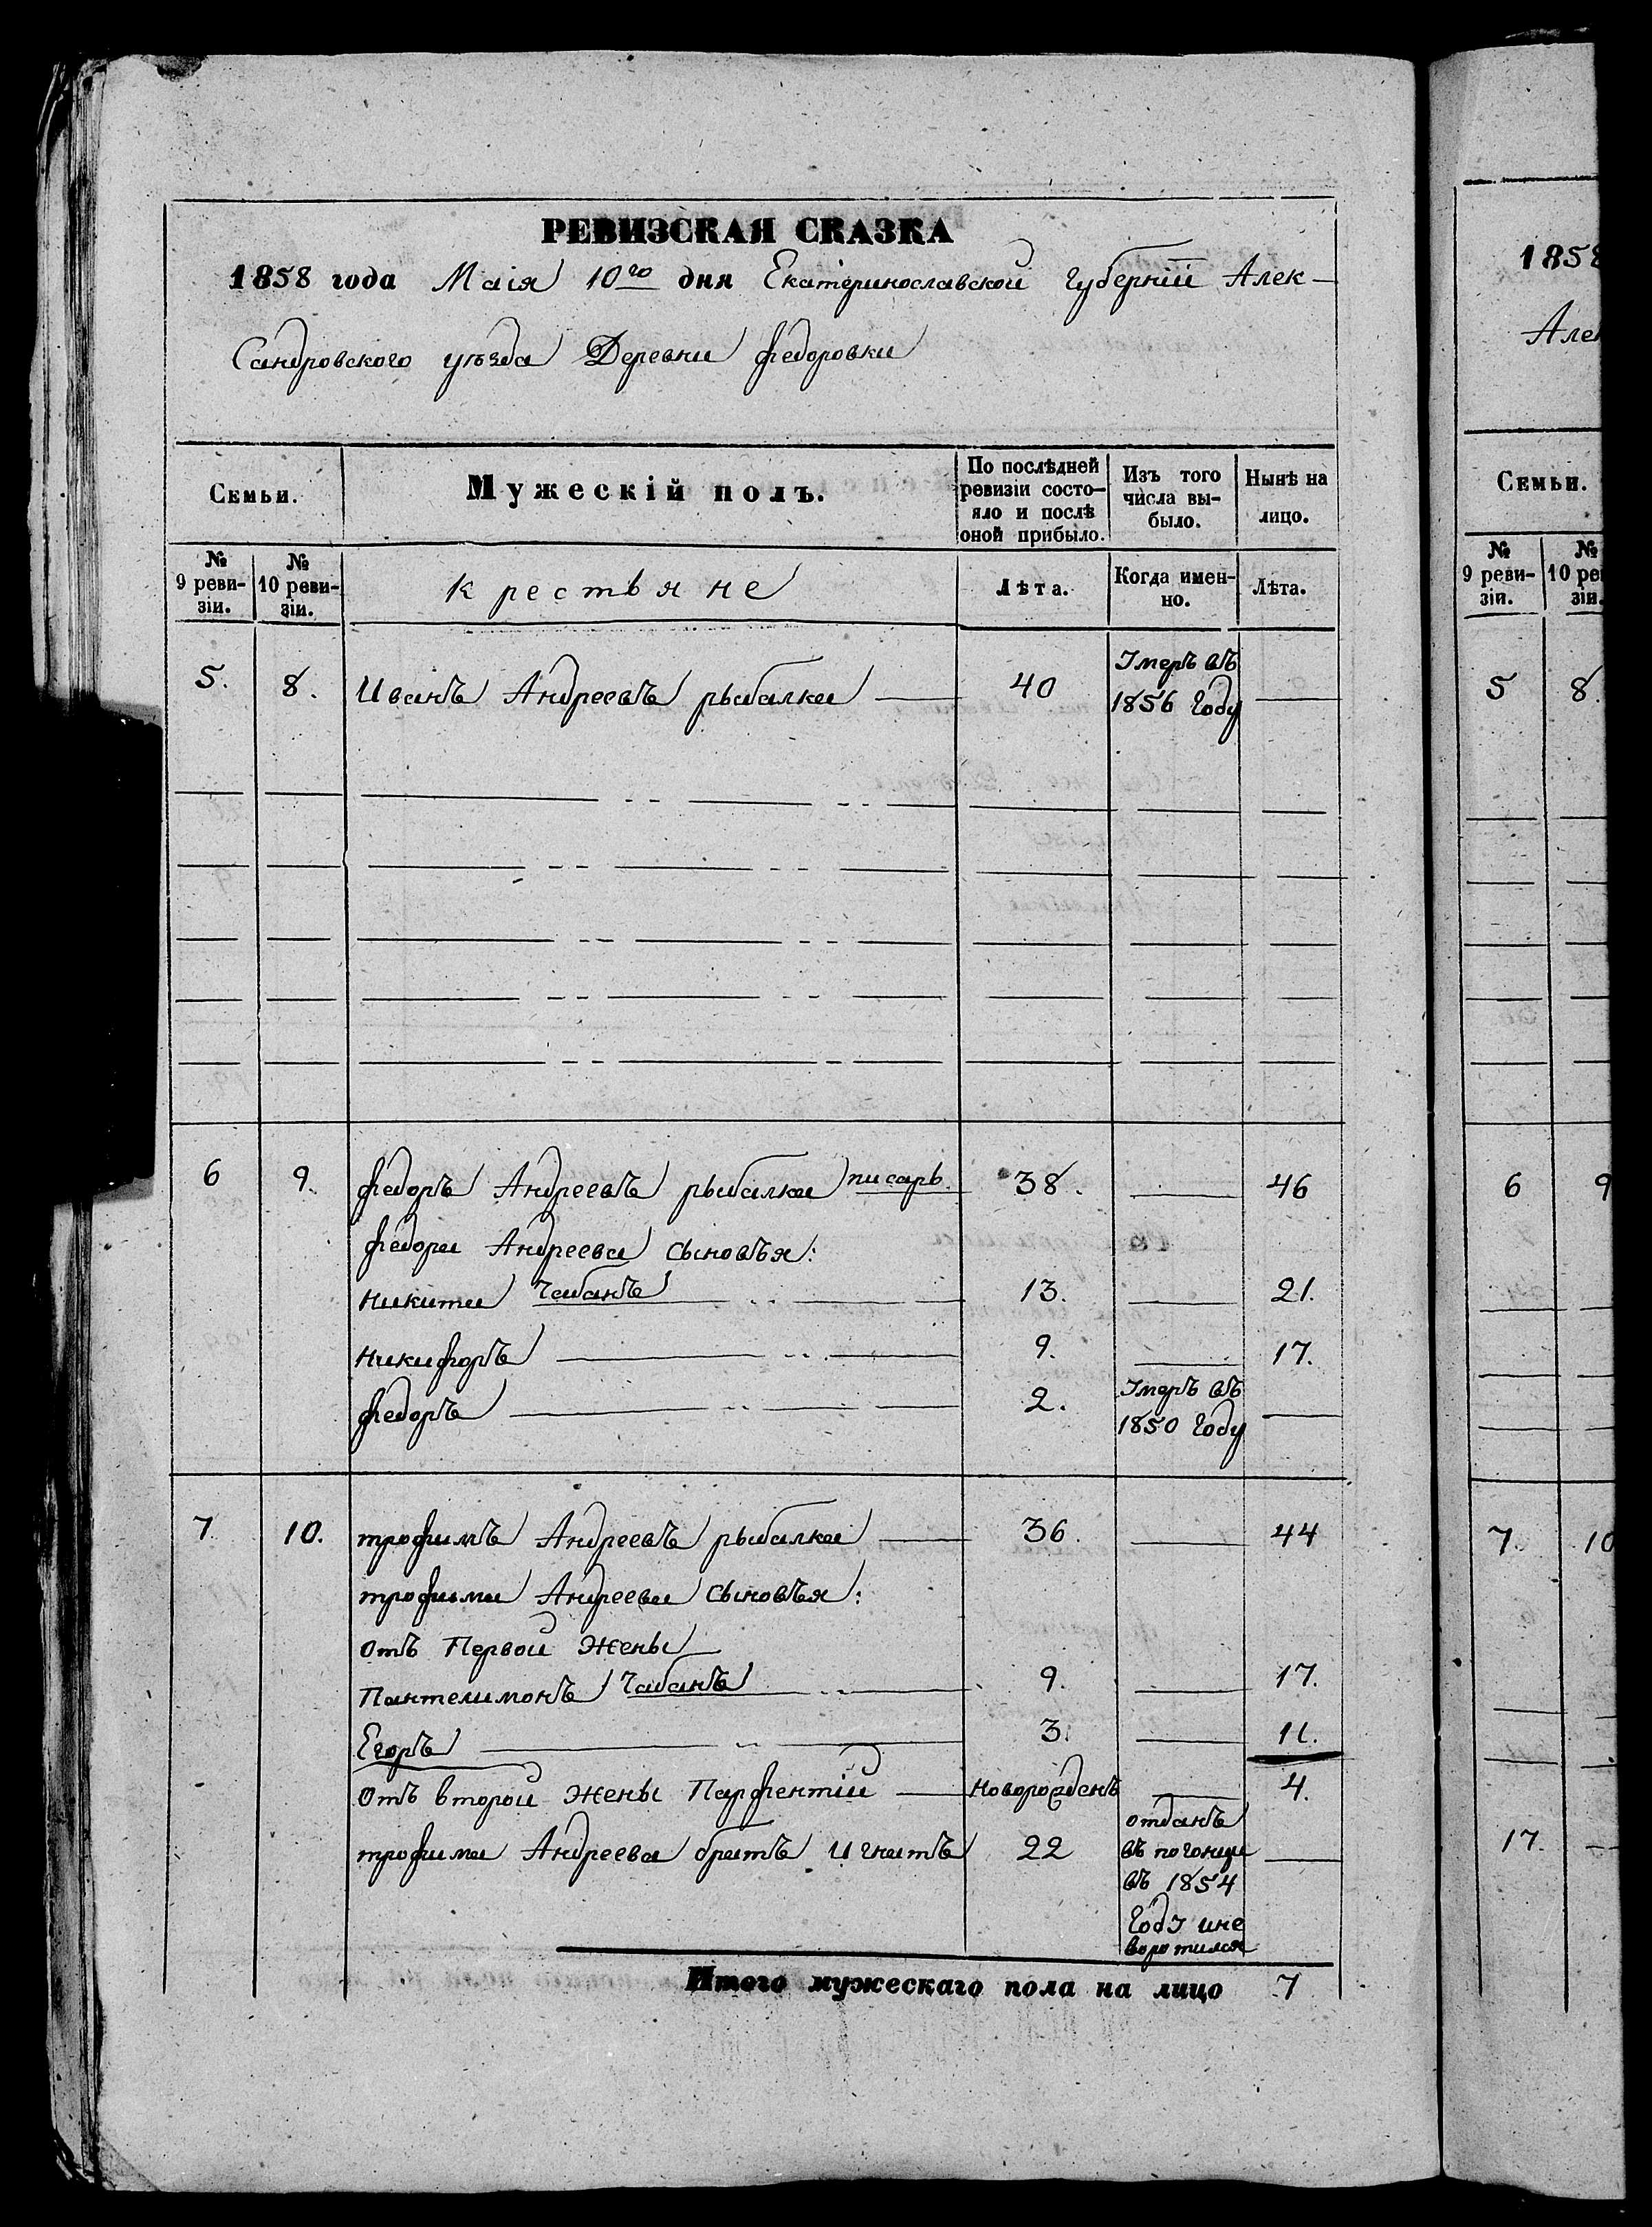 РЕВИЗСКАЯ СКАЗКА
1858 года Маія 10го дня Екатеринославской Губерніи Алек-
Сандровского уѣзда Деревни федоровки
Семьи. Мужескій полъ. По послѣдней ревизіи состо- яло и послѣ оной прибыло. Изъ того числа вы- было. Нынѣ на лицо.
№ 9 реви- зіи. № 10 реви- зіи. крестьяне Лѣта. Когда имен- но. Лѣта.
5. 8. Иванъ Андреевъ рыбалка 40 Умеръ въ 1856 Году
6 9. федоръ Андреевъ рыбалка писарь. 38. 46
федора Андреева сыновья:
никита Чабанъ 13. 21.
никифоръ 9. 17.
федоръ 2. Умеръ въ 1850 Году
7 10. трофимъ Андреевъ рыбалка 36. 44
трофима Андреева сыновья:
отъ Первой Жены
Пантелимонъ Чабанъ 9. 17.
Егоръ 3. 11.
отъ второй жены Парфентій новорожденъ 4.
трофима Андреева братъ игнатъ 22 отданъ
въ погонцы
въ 1854
Году и не
воротился
Итого мужескаго пола на лицо 7
1858
Алек
Семьи.
№ 9 реви- зіи. № 10 ре зіи.
5 8.
6 9
7. 10
17.